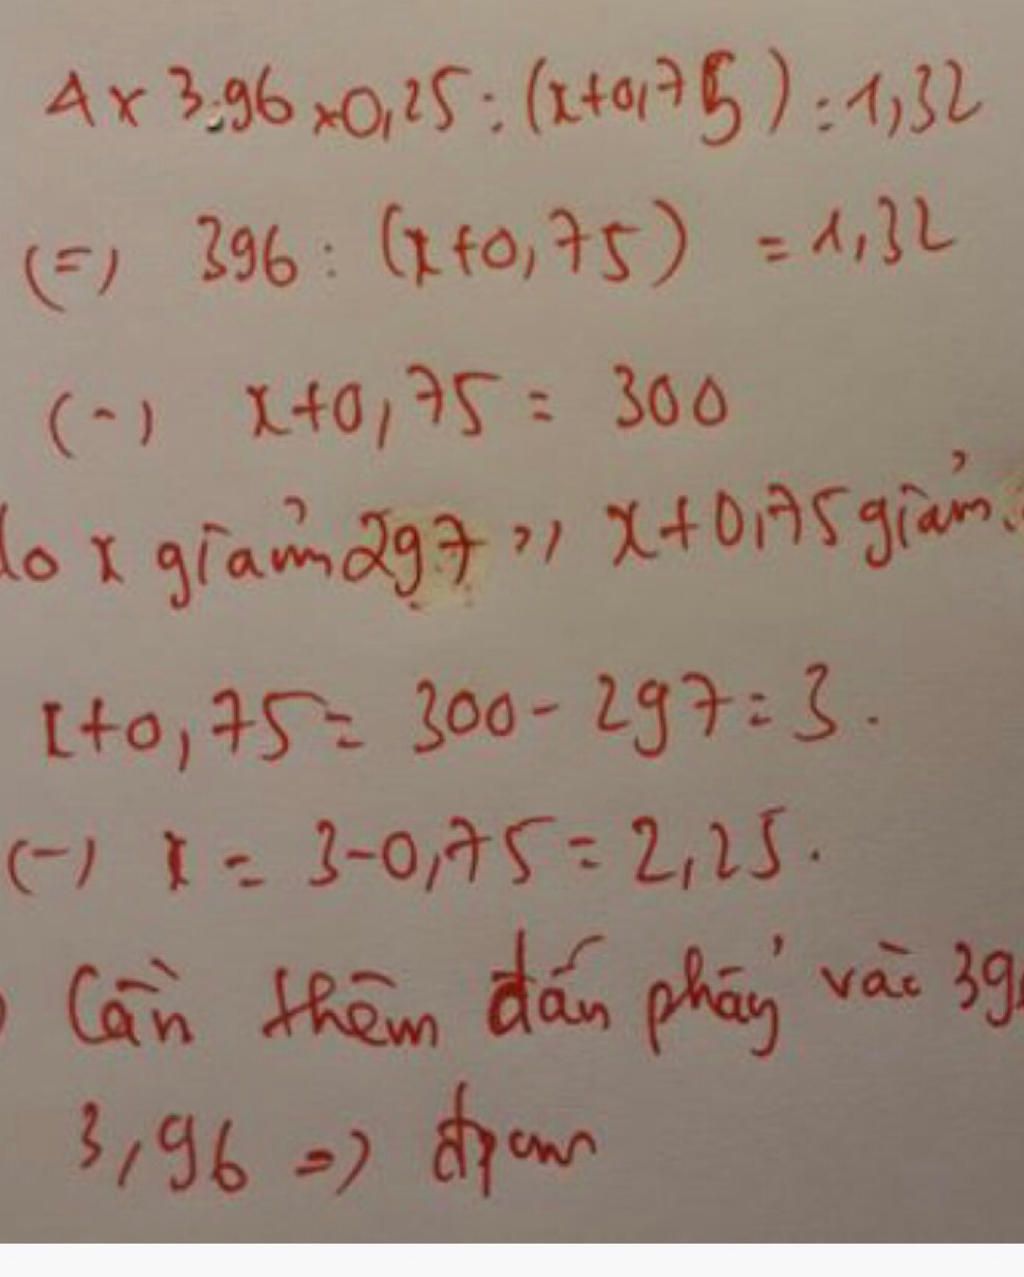 4 x 3.96 x 0,25 : (x+0,75) = 1,32
(=) 396 : (x+0,75) = 1,32
(-) x+0,75 = 300
do x giảm 297 => x+0,75 giảm
x+0,75 = 300 - 297 = 3.
(-) x = 3-0,75 = 2,25.
Cần thêm dấn phẩy vào
3,96 => đpcm